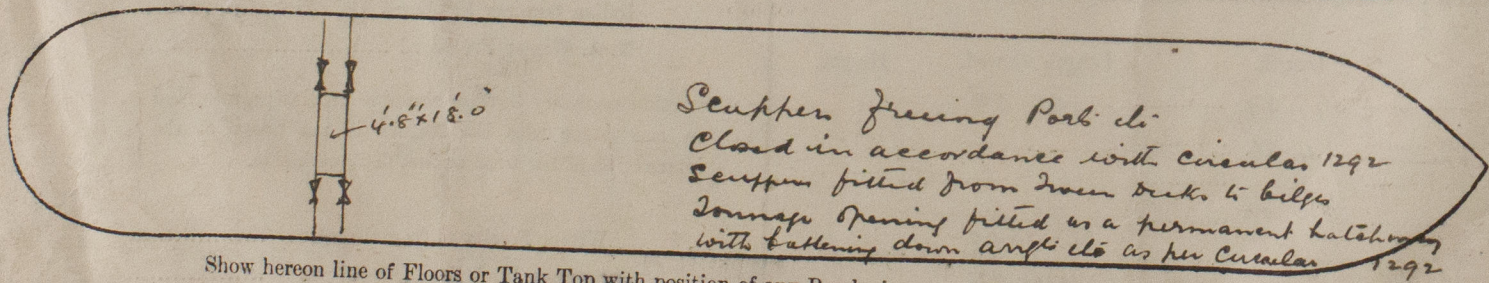 4'.8"x18'.0"
Scuppers Freeing Ports etc
Closed in accordance with circular 1292
Scuppers fitted from Tween Decks to bilges
Tonnage opening fitted as a permanent hatchway
with battening down angles etc as per Circular 1292
Show hereon line of Floors or Tank Top with position of any